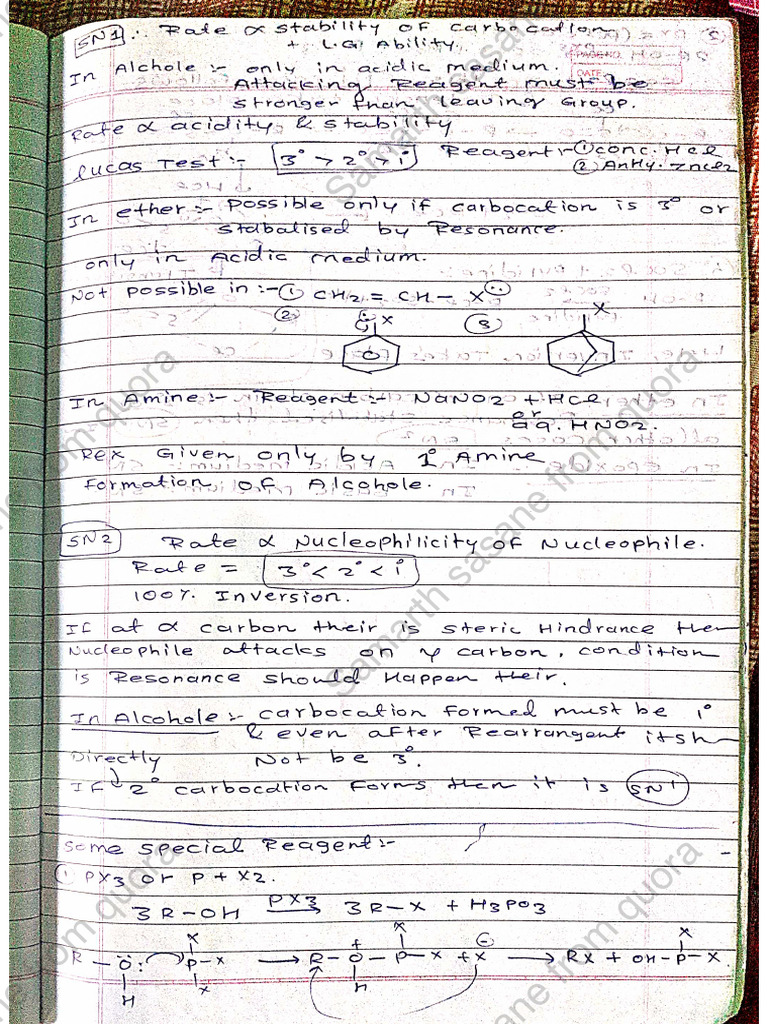 SN1 ∴ Rate ∝ stability of carbocation
+ L.G. Ability.
In Alchole :- only in acidic medium.
Attacking Reagent must be
stronger than leaving Group.
Rate ∝ acidity & stability
Lucas Test :- 3° > 2° > 1° Reagent :- ① conc. HCl
② AnHy. ZnCl2
In ether :- Possible only if carbocation is 3° or
stabalised by Resonance.
only in Acidic medium.
Not possible in :- ① CH2 = CH - X
② X ③ X
In Amine :- Reagent :- NaNO2 + HCl
or
aq. HNO2.
Rex Given only by 1° Amine
Formation of Alcohole.
SN2 Rate ∝ Nucleophilicity of Nucleophile.
Rate = 3° < 2° < 1°
100% Inversion.
If at α carbon their is steric Hindrance then
Nucleophile attacks on γ carbon, condition
is Resonance should Happen their.
In Alcohole :- carbocation formed must be 1°
& even after Rearrangent itsh
Directly Not be 3°.
If 2° carbocation forms then it is SN1
Some special Reagent :-
① PX3 or P + X2.
3 R-OH PX3 → 3 R-X + H3PO3
R - Ö: P - X → R - O - P - X + X → RX + OH - P - X
H X X + H X - X
Samarth sasane from quora